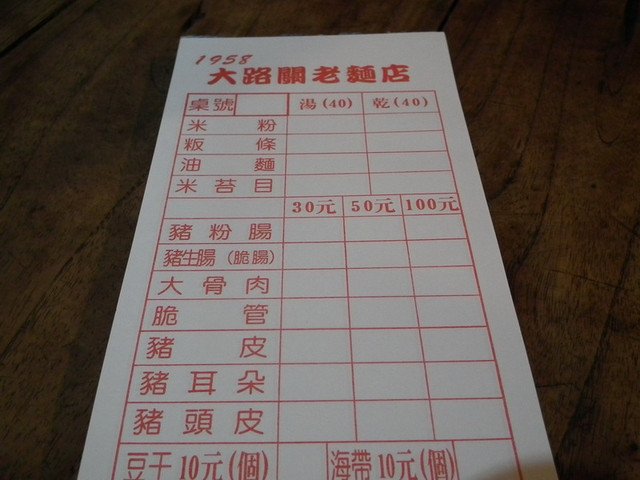 1958
大路關老麵店
桌號 湯(40) 乾(40)
米粉
粄條
油麵
米苔目
30元 50元 100元
豬粉腸
豬生腸(脆腸)
大骨肉
脆管
豬皮
豬耳朵
豬頭皮
豆干10元(個) 海帶10元(個)